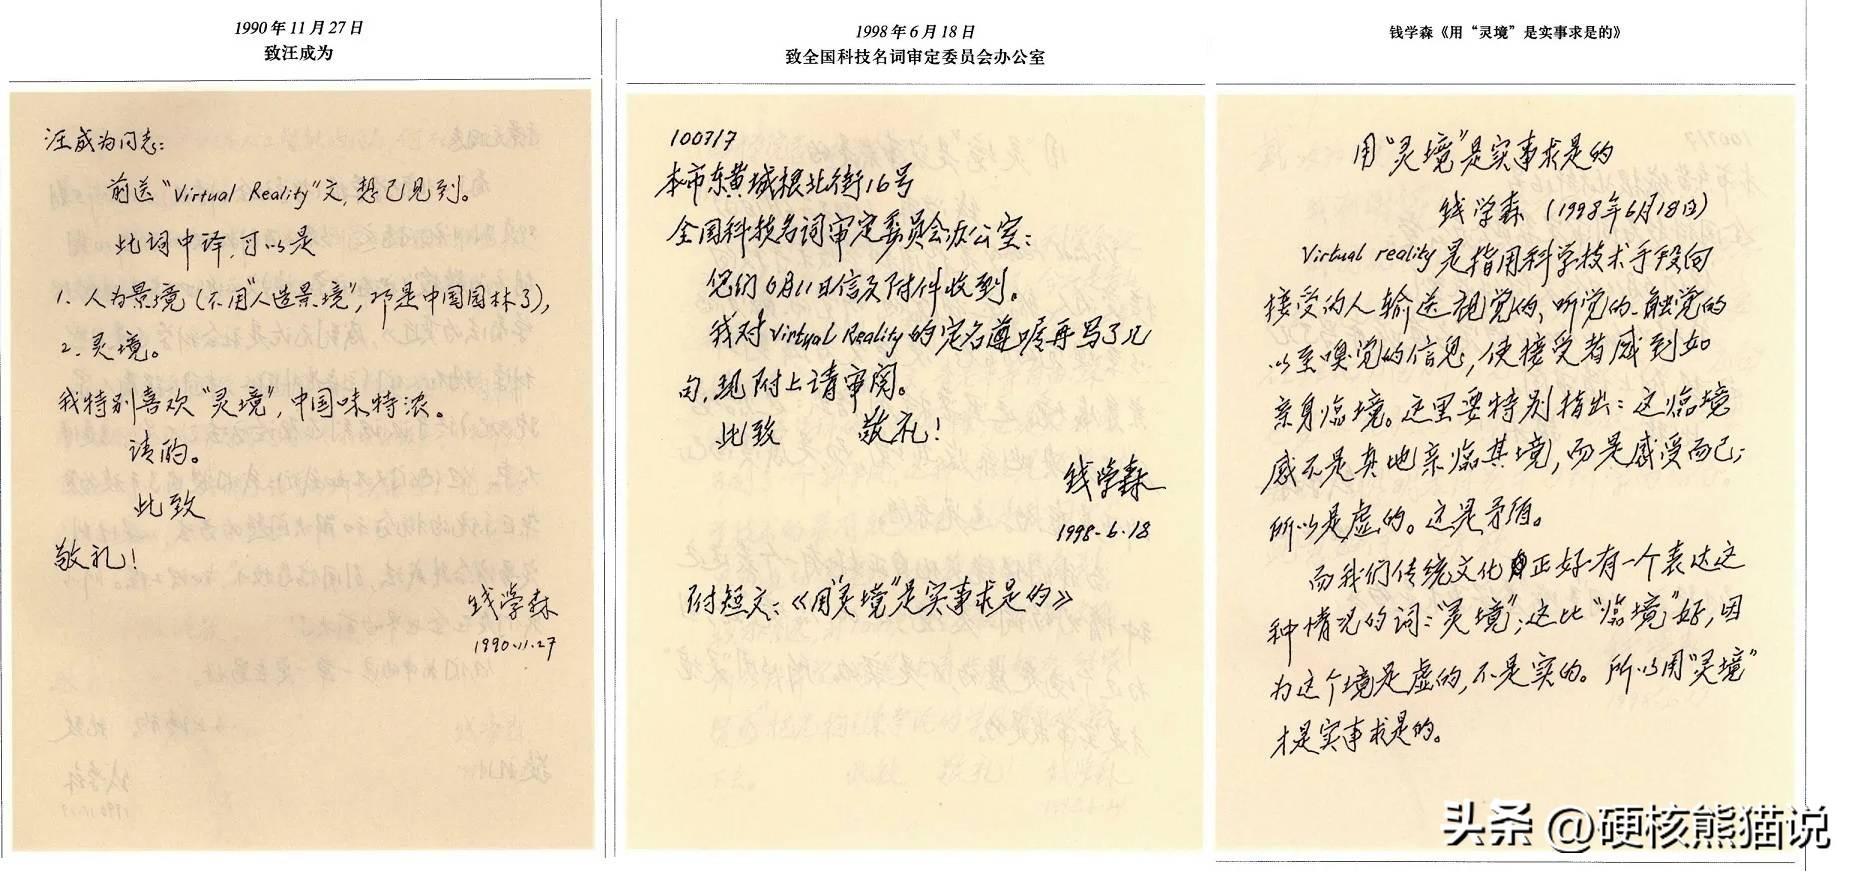 1990年11月27日
致汪成为
汪成为同志：
前送“Virtual Reality”文，想已见到。
此词中译，可以是
1. 人为景境（不用“人造景境”，那是中国园林了），
2. 灵境。
我特别喜欢“灵境”，中国味特浓。
请酌。
此致
敬礼！
钱学森
1990.11.27
1998年6月18日
致全国科技名词审定委员会办公室
100717
本市东黄城根北街16号
全国科技名词审定委员会办公室：
您们6月11日信及附件收到。
我对Virtual Reality的定名遵嘱再写了几
句，现附上请审阅。
此致 敬礼！
钱学森
1998.6.18
附短文：《用“灵境”是实事求是的》
钱学森《用“灵境”是实事求是的》
用“灵境”是实事求是的
钱学森（1998年6月18日）
Virtual reality是指用科学技术手段向
接受的人输送视觉的、听觉的、触觉的
以至嗅觉的信息，使接受者感到如
亲身临境。这里要特别指出：这临境
感不是真地亲临其境，而是感受而已；
所以是虚的。这是矛盾。
而我们传统文化正好有一个表达这
种情况的词：“灵境”；这比“临境”好，因
为这个境是虚的，不是实的。所以用“灵境”
才是实事求是的。
头条 @硬核熊猫说